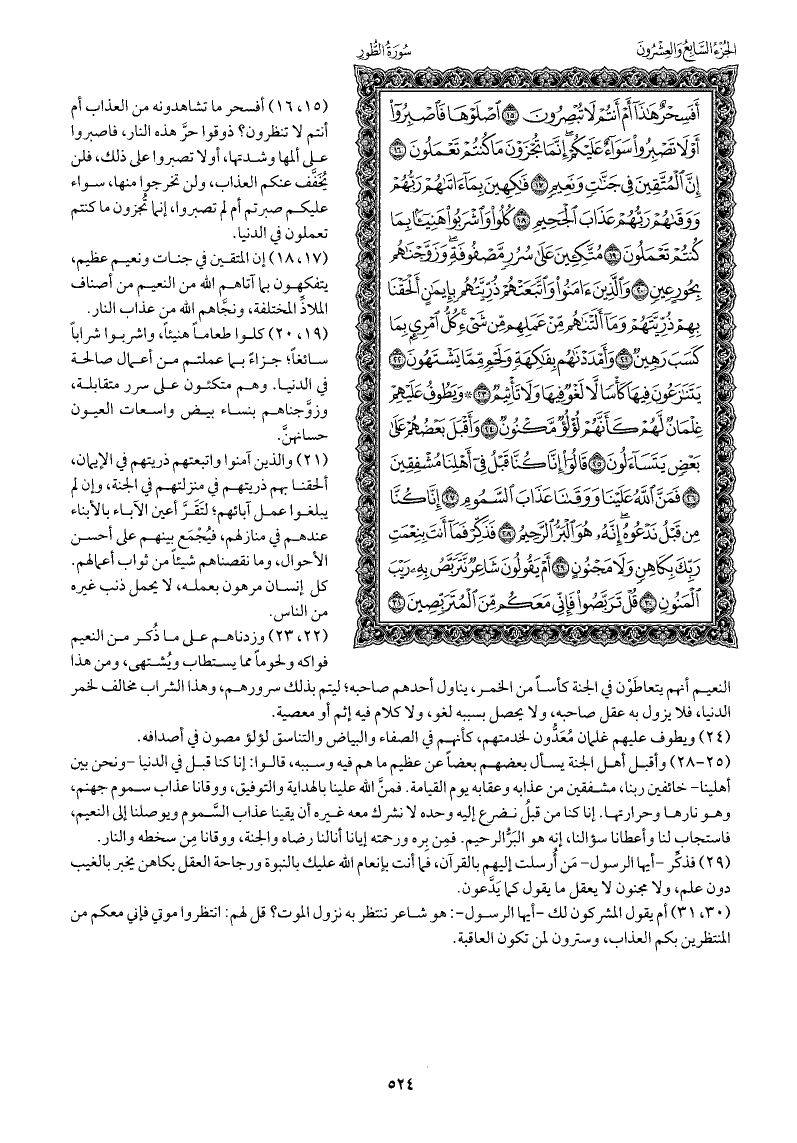 الجزء السابع والعشرون
سورة الطور
أَفَسِحْرٌ هَٰذَآ أَمْ أَنتُمْ لَا تُبْصِرُونَ ١٥ ٱصْلَوْهَا فَٱصْبِرُوٓا۟
أَوْ لَا تَصْبِرُوا۟ سَوَآءٌ عَلَيْكُمْ ۖ إِنَّمَا تُجْزَوْنَ مَا كُنتُمْ تَعْمَلُونَ ١٦
إِنَّ ٱلْمُتَّقِينَ فِى جَنَّٰتٍ وَنَعِيمٍ ١٧ فَٰكِهِينَ بِمَآ ءَاتَىٰهُمْ رَبُّهُمْ
وَوَقَىٰهُمْ رَبُّهُمْ عَذَابَ ٱلْجَحِيمِ ١٨ كُلُوا۟ وَٱشْرَبُوا۟ هَنِيٓـًٔۢا بِمَا
كُنتُمْ تَعْمَلُونَ ١٩ مُتَّكِـِٔينَ عَلَىٰ سُرُرٍ مَّصْفُوفَةٍ ۖ وَزَوَّجْنَٰهُم
بِحُورٍ عِينٍ ٢٠ وَٱلَّذِينَ ءَامَنُوا۟ وَٱتَّبَعَتْهُمْ ذُرِّيَّتُهُم بِإِيمَٰنٍ أَلْحَقْنَا
بِهِمْ ذُرِّيَّتَهُمْ وَمَآ أَلَتْنَٰهُم مِّنْ عَمَلِهِم مِّن شَىْءٍ ۚ كُلُّ ٱمْرِئٍۭ بِمَا
كَسَبَ رَهِينٌ ٢١ وَأَمْدَدْنَٰهُم بِفَٰكِهَةٍ وَلَحْمٍ مِّمَّا يَشْتَهُونَ ٢٢
يَتَنَٰزَعُونَ فِيهَا كَأْسًا لَّا لَغْوٌ فِيهَا وَلَا تَأْثِيمٌ ٢٣ ۞ وَيَطُوفُ عَلَيْهِمْ
غِلْمَانٌ لَّهُمْ كَأَنَّهُمْ لُؤْلُؤٌ مَّكْنُونٌ ٢٤ وَأَقْبَلَ بَعْضُهُمْ عَلَىٰ
بَعْضٍ يَتَسَآءَلُونَ ٢٥ قَالُوٓا۟ إِنَّا كُنَّا قَبْلُ فِىٓ أَهْلِنَا مُشْفِقِينَ
٢٦ فَمَنَّ ٱللَّهُ عَلَيْنَا وَوَقَىٰنَا عَذَابَ ٱلسَّمُومِ ٢٧ إِنَّا كُنَّا
مِن قَبْلُ نَدْعُوهُ ۖ إِنَّهُۥ هُوَ ٱلْبَرُّ ٱلرَّحِيمُ ٢٨ فَذَكِّرْ فَمَآ أَنتَ بِنِعْمَتِ
رَبِّكَ بِكَاهِنٍ وَلَا مَجْنُونٍ ٢٩ أَمْ يَقُولُونَ شَاعِرٌ نَّتَرَبَّصُ بِهِۦ رَيْبَ
ٱلْمَنُونِ ٣٠ قُلْ تَرَبَّصُوا۟ فَإِنِّى مَعَكُم مِّنَ ٱلْمُتَرَبِّصِينَ ٣١
(١٥، ١٦) أفسحر ما تشاهدونه من العذاب أم
أنتم لا تنظرون؟ ذوقوا حرَّ هذه النار، فاصبروا
على ألمها وشدتها، أو لا تصبروا على ذلك، فلن
يُخَفَّف عنكم العذاب، ولن تخرجوا منها، سواء
عليكم صبرتم أم لم تصبروا، إنما تُجزون ما كنتم
تعملون في الدنيا.
(١٧، ١٨) إن المتقين في جنات ونعيم عظيم،
يتفكهون بما آتاهم الله من النعيم من أصناف
الملاذِّ المختلفة، ونجَّاهم الله من عذاب النار.
(١٩، ٢٠) كلوا طعاماً هنيئاً، واشربوا شراباً
سائغاً؛ جزاءً بما عملتم من أعمال صالحة
في الدنيا. وهم متكئون على سرر متقابلة،
وزوَّجناهم بنساء بيض واسعات العيون
حسانهنَّ.
(٢١) والذين آمنوا واتبعتهم ذريتهم في الإيمان،
ألحقنا بهم ذريتهم في منزلتهم في الجنة، وإن لم
يبلغوا عمل آبائهم؛ لتَقَرَّ أعين الآباء بالأبناء
عندهم في منازلهم، فيُجْمَع بينهم على أحسن
الأحوال، وما نقصناهم شيئاً من ثواب أعمالهم.
كل إنسان مرهون بعمله، لا يحمل ذنب غيره
من الناس.
(٢٢، ٢٣) وزدناهم على ما ذُكر من النعيم
فواكه ولحوماً مما يستطاب ويُشتهى، ومن هذا
النعيم أنهم يتعاطَوْن في الجنة كأساً من الخمر، يناول أحدهم صاحبه؛ ليتم بذلك سرورهم، وهذا الشراب مخالف لخمر
الدنيا، فلا يزول به عقل صاحبه، ولا يحصل بسببه لغو، ولا كلام فيه إثم أو معصية.
(٢٤) ويطوف عليهم غلمان مُعَدُّون لخدمتهم، كأنهم في الصفاء والبياض والتناسق لؤلؤ مصون في أصدافه.
(٢٥-٢٨) وأقبل أهل الجنة يسأل بعضهم بعضاً عن عظيم ما هم فيه وسببه، قالوا: إنا كنا قبل في الدنيا -ونحن بين
أهلينا- خائفين ربنا، مشفقين من عذابه وعقابه يوم القيامة. فمنَّ الله علينا بالهداية والتوفيق، ووقانا عذاب سموم جهنم،
وهو نارها وحرارتها. إنا كنا من قبلُ نضرع إليه وحده لا نشرك معه غيره أن يقينا عذاب السَّموم ويوصلنا إلى النعيم،
فاستجاب لنا وأعطانا سؤالنا، إنه هو البَرُّ الرحيم. فمِن بِره ورحمته إيانا أنالنا رضاه والجنة، ووقانا مِن سخطه والنار.
(٢٩) فذكِّر -أيها الرسول- مَن أُرسلت إليهم بالقرآن، فما أنت بإنعام الله عليك بالنبوة ورجاحة العقل بكاهن يخبر بالغيب
دون علم، ولا مجنون لا يعقل ما يقول كما يَدَّعون.
(٣٠، ٣١) أم يقول المشركون لك -أيها الرسول-: هو شاعر ننتظر به نزول الموت؟ قل لهم: انتظروا موتي فإني معكم من
المنتظرين بكم العذاب، وسترون لمن تكون العاقبة.
٥٢٤